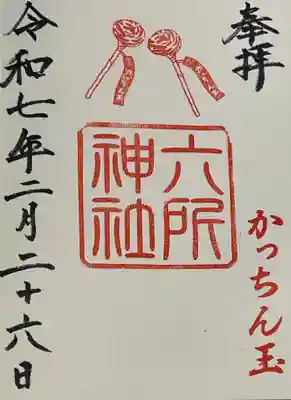 奉拝
かっちん玉
六所
神社
令和七年二月二十六日